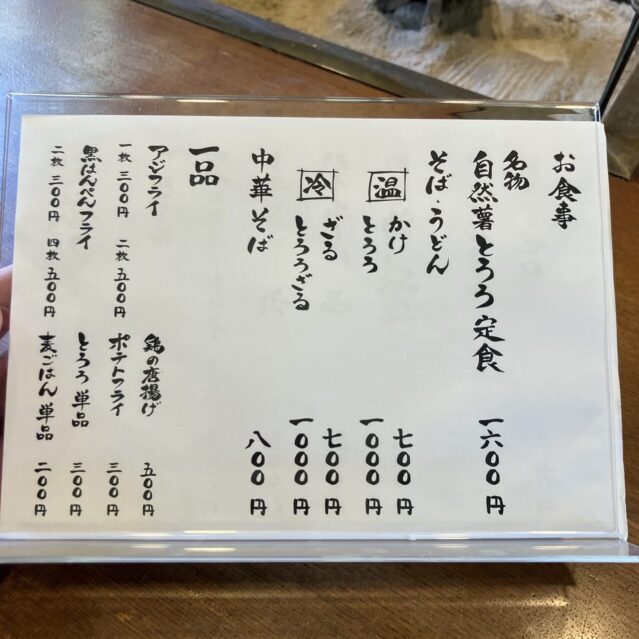 お食事
名物
自然薯とろろ定食 一六〇〇円
そば・うどん
温
かけ 七〇〇円
とろろ 一〇〇〇円
冷
ざる 七〇〇円
とろろざる 一〇〇〇円
中華そば 八〇〇円
一品
アジフライ
一枚 三〇〇円 二枚 五〇〇円
黒はんぺんフライ
二枚 三〇〇円 四枚 五〇〇円
鶏の唐揚げ 五〇〇円
ポテトフライ 三〇〇円
とろろ 単品 三〇〇円
麦ごはん 単品 二〇〇円